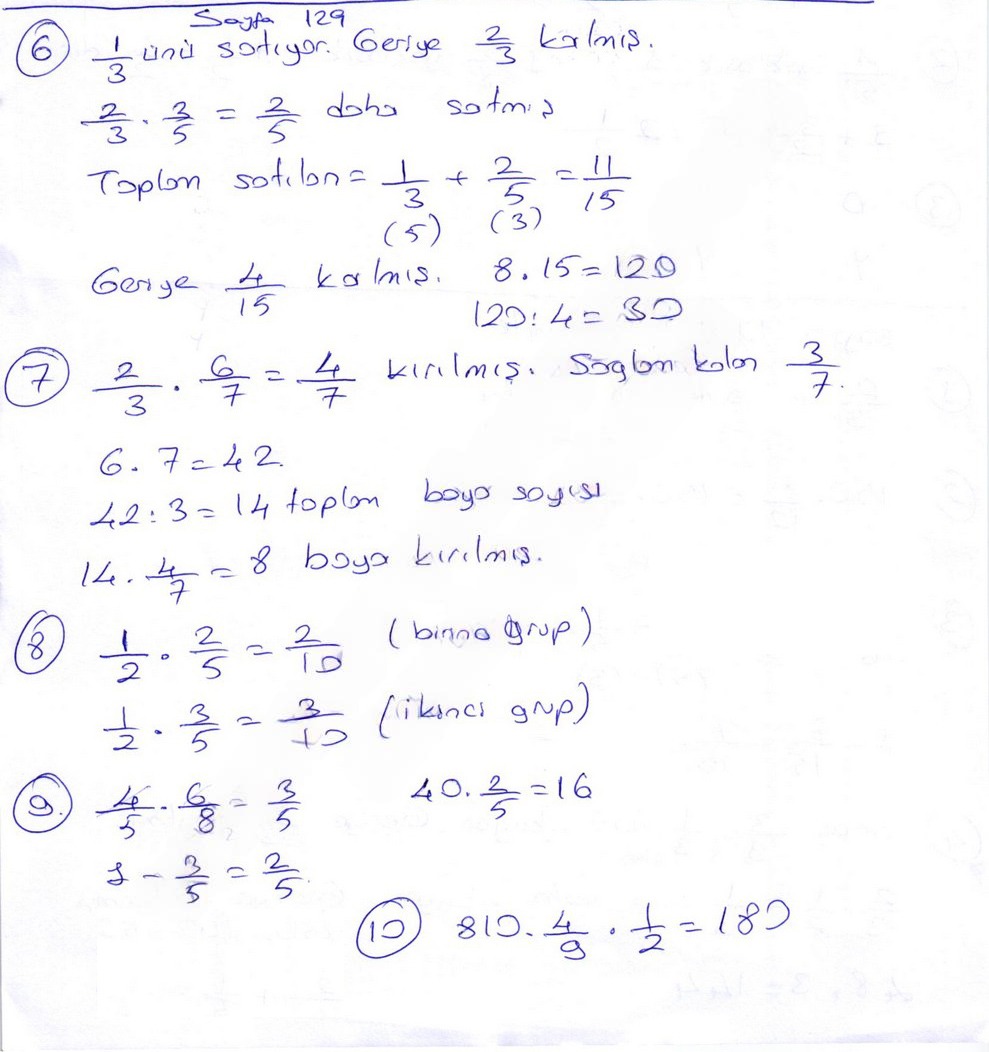 Sayfa 129
6 1/3 ünü satıyor. Geriye 2/3 kalmış.
2/3 . 3/5 = 2/5 daha satmış
Toplam satılan = 1/3 + 2/5 = 11/15
(5) (3)
Geriye 4/15 kalmış. 8.15=120
120:4=30
7 2/3 . 6/7 = 4/7 kırılmış. Sağlam kalan 3/7.
6.7=42.
42:3=14 toplam boya sayısı
14. 4/7 = 8 boya kırılmış.
8 1/2 . 2/5 = 2/10 ( grup)
1/2 . 3/5 = 3/10 (ikinci grup)
9. 4/5 . 6/8 = 3/5 40. 2/5 =16
2
1 - 3/5 = 2/5.
10 810. 4/9 . 1/2 = 180